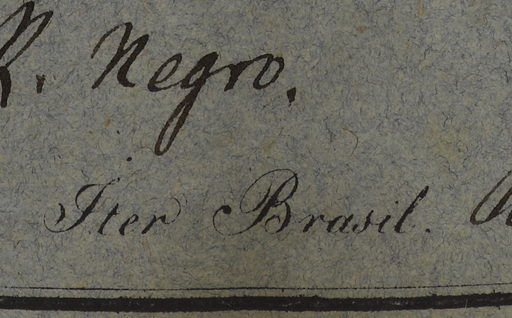 R. Negro.
Iter Brasil.